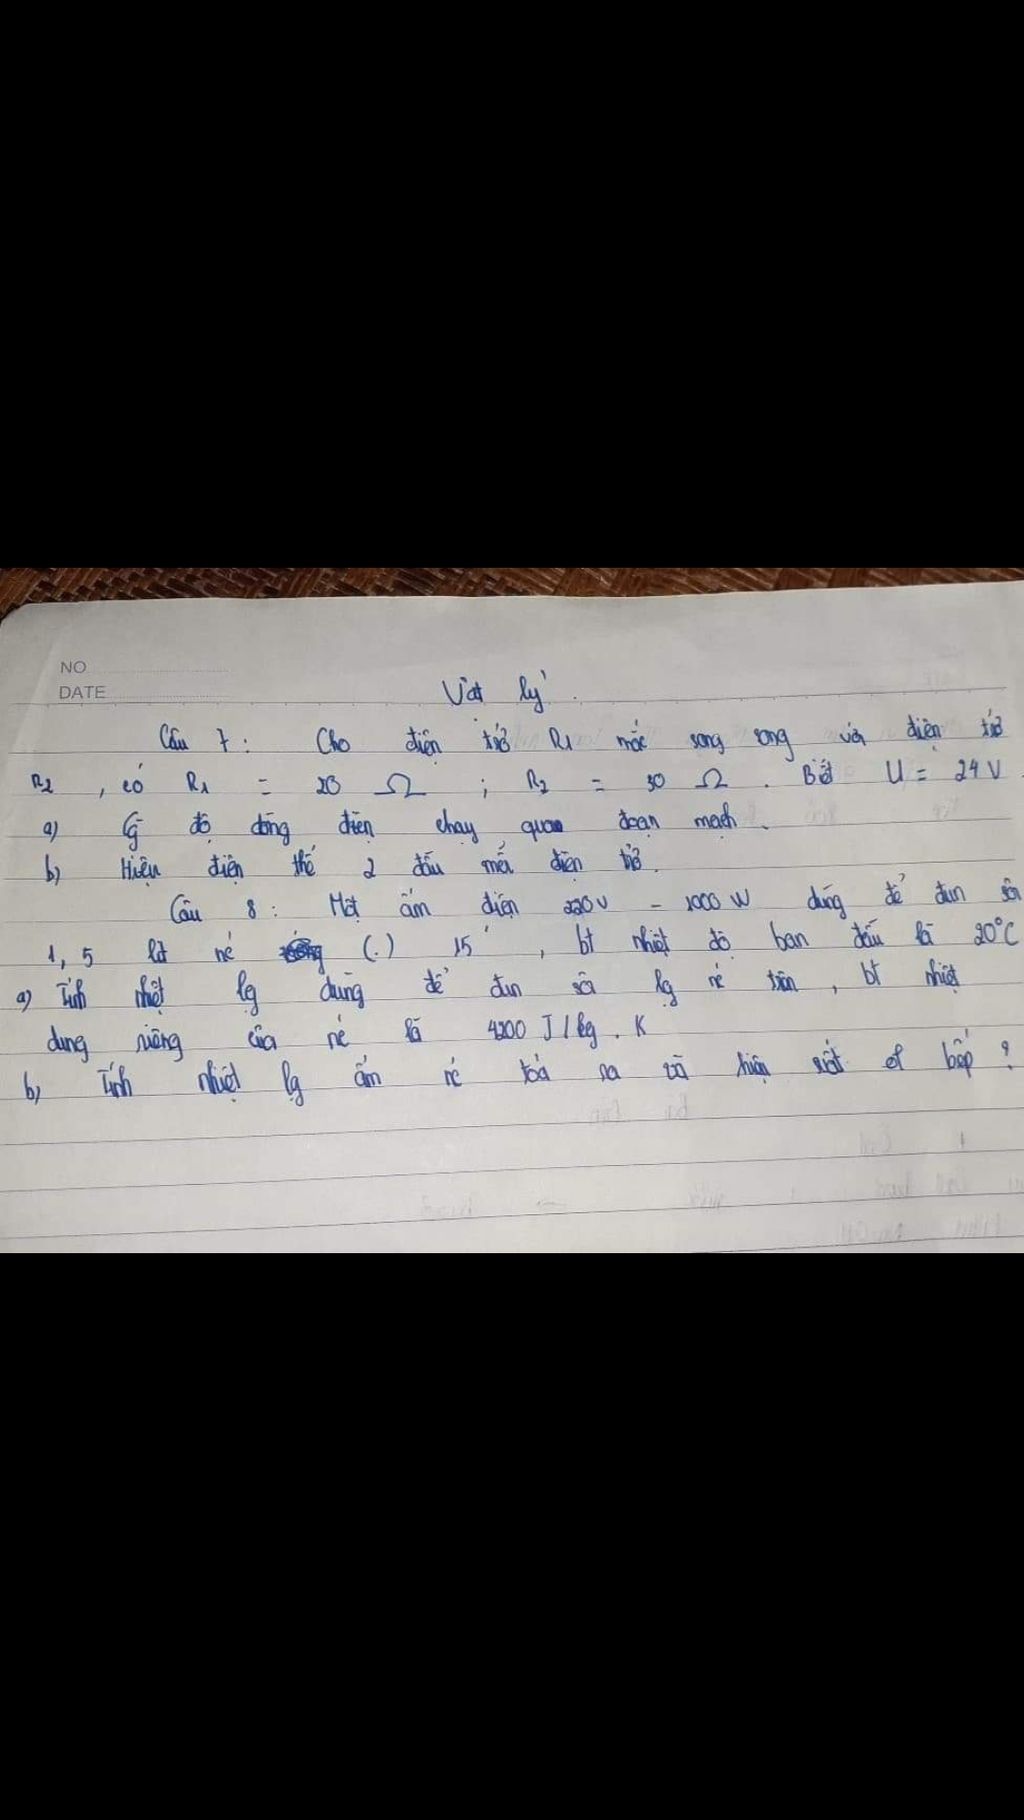 NO
DATE
Vật lý
Câu 7 : Cho điện trở R1 mắc song song với điện trở
R2 , có R1 = 20 Ω ; R2 = 30 Ω . Biết U = 24 V
a) độ dòng điện chạy qua đoạn mạch .
b) Hiệu điện thế 2 đầu mỗi điện trở .
Câu 8 : Một ấm điện 220V - 1000 W dùng để đun sôi
1,5 lít nc (.) 15' , bt nhiệt độ ban đầu là 20°C
a) Tính nhiệt lg dùng để đun sôi lg nc trên , bt nhiệt
dung riêng của nc là 4200 J/kg . K
b) Tính nhiệt lg ấm nc toả ra và hiệu suất of bếp ?